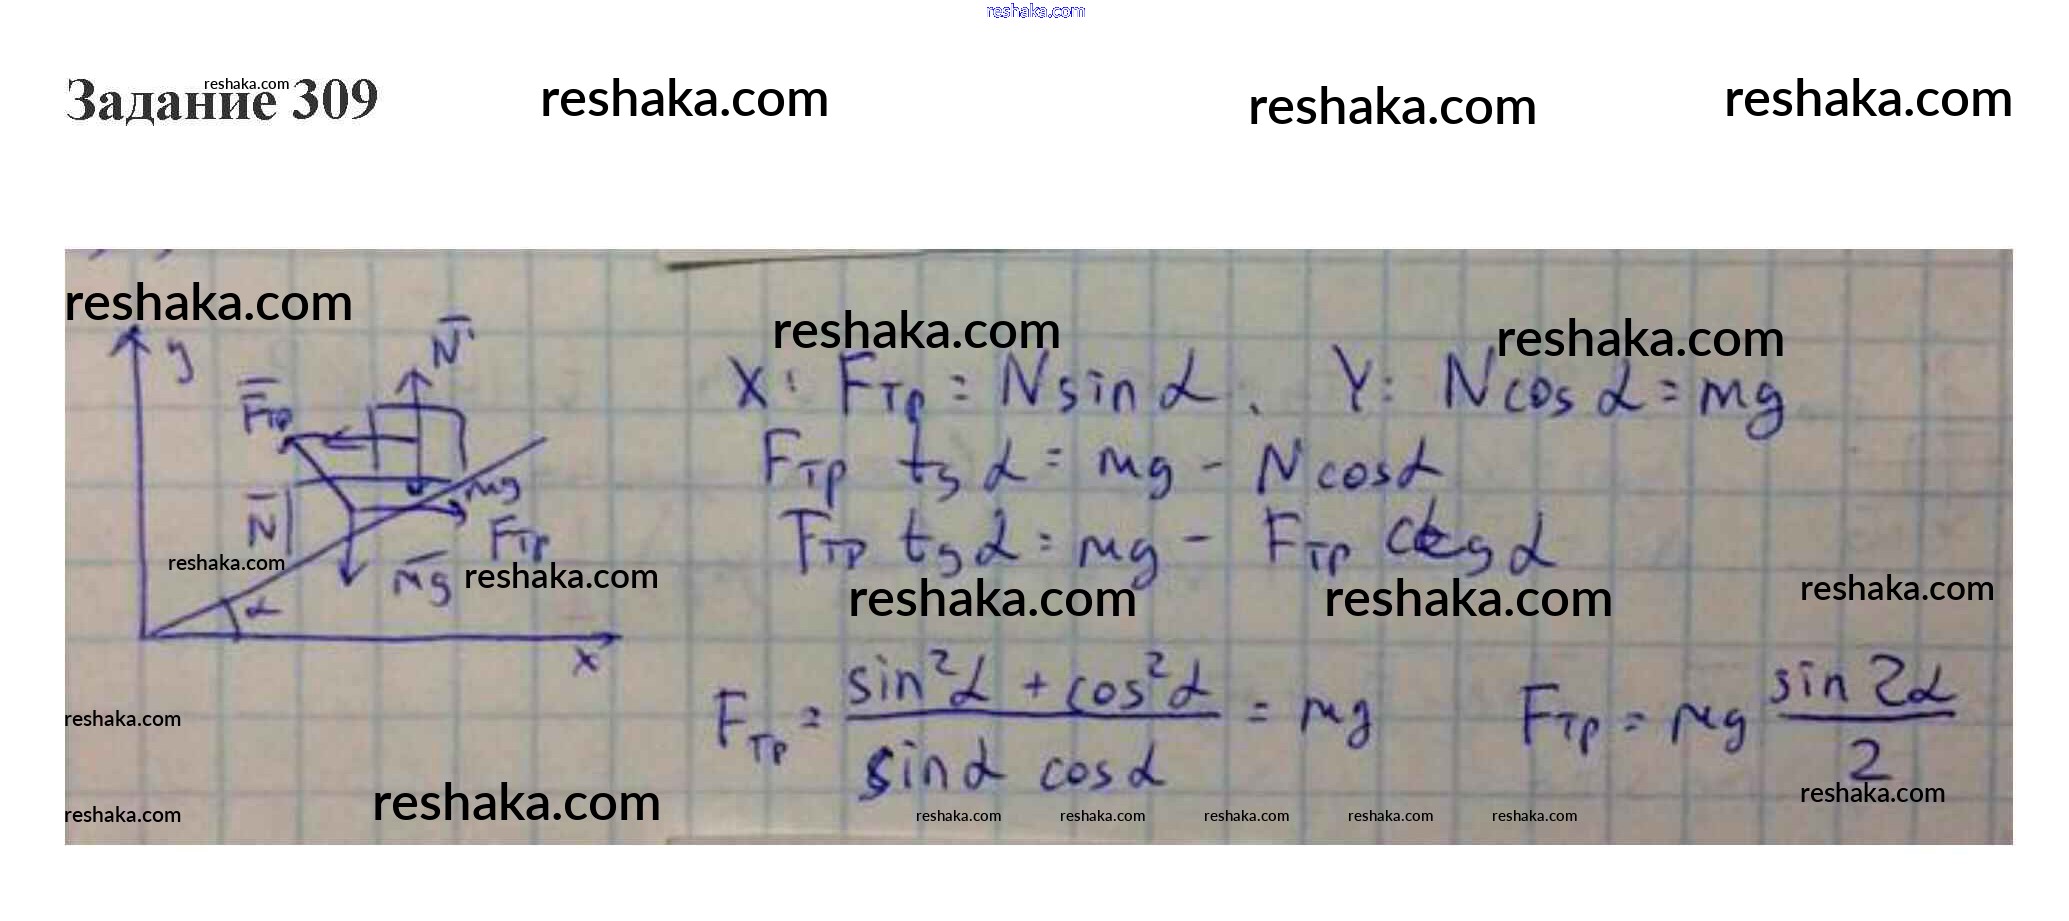 reshaka.com
Задание 309
reshaka.com
reshaka.com reshaka.com reshaka.com
reshaka.com
reshaka.com reshaka.com
y
N'
Fтр
X: Fтр = N sin α. Y: N cos α = mg
Fтр tg α = mg - N cos α
mg
N
Fтр
Fтр tg α = mg - Fтр ctg α
reshaka.com
mg
reshaka.com
reshaka.com reshaka.com reshaka.com
α
x
Fтр = sin²α + cos²α / sin α cos α = mg Fтр = mg sin 2α / 2
reshaka.com
reshaka.com
reshaka.com
reshaka.com
reshaka.com reshaka.com reshaka.com reshaka.com reshaka.com